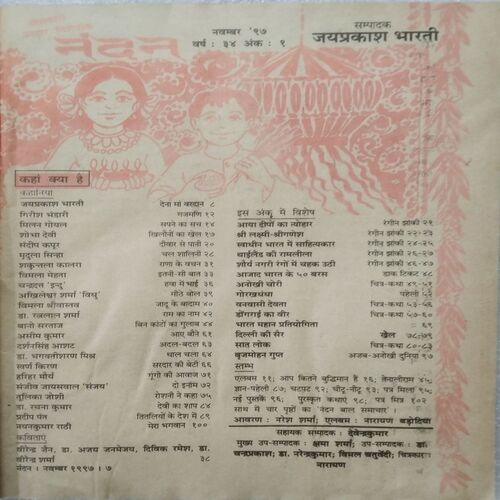 नवम्बर '९७
वर्ष : ३४ अंक : १
सम्पादक
जयप्रकाश भारती
नंदन
कहां क्या है
कहानियां
जयप्रकाश भारती देना मां वरदान ८
गिरीश भंडारी गजमणि १२
मिलन गोयल सपने का सच १४
शोभा देवी खिलौनों का खेल १७
संदीप कपूर दीवार से पानी २०
मृदुला सिन्हा चल शालिनी २८
शकुन्तला कालरा राणा के वचन ३१
विमला मेहता इतनी-सी बात ३३
चन्द्रदत्त 'इन्दु' हवा में भाई ३६
अखिलेश्वर शर्मा 'विधु' मीठे बोल ३९
विमला श्रीवास्तव जादू के बादाम ४०
डा. रत्नलाल शर्मा राम का नाम ४२
बानो सरताज बिन कांटों का गुलाब ४४
असीम कुमार आए बौने ६१
दर्शनसिंह आशट अदल-बदल ६३
डा. भगवतीशरण मिश्र थाल चला ६४
स्वर्ण किरण सरदार की बेटी ६६
हरिहर मौर्य गूंगों की आवाज ७१
संजीव जायसवाल 'संजय' दो इनाम ७२
तूलिका जोशी रोशनी ने कहा ७५
डा. रचना कुमार देवी का शाप ८४
प्रदीप पंत तितलियों के देश में ८९
नयनकुमार राठी मेरा भगवान १००
कविताएं
वीरेन्द्र जैन, डा. अजय जनमेजय, दिविक रमेश, डा.
वीरेन्द्र शर्मा ३८
नंदन । नवम्बर १९९७ । ७
इस अंक में विशेष
आया दीपों का त्योहार रंगीन झांकी २१
श्री लक्ष्मी-श्रीगणेश रंगीन झांकी २२-२३
स्वाधीन भारत में साहित्यकार रंगीन झांकी २४-२५
थाईलैंड की रामलीला रंगीन झांकी २६
शौर्य नगरी रंगों में चहक उठी रंगीन झांकी ४६-४७
आजाद भारत के ५० बरस डाक टिकट ४८
अनोखी चोरी चित्र-कथा ४९-५१
गोरखधंधा पहेली ५२
वनवासी देवता चित्र-कथा ५३-५६
डोंगराई का वीर चित्र-कथा ५७-६०
भारत महान प्रतियोगिता ६९
दिल्ली की सैर खेल ७८-७९
सात लोक चित्र-कथा ८०-८३
बृजमोहन गुप्त अजब-अनोखी दुनिया ९७
स्तम्भ
एलबम ११; आप कितने बुद्धिमान हैं १६; तेनालीराम ४५;
ज्ञान-पहेली ८७; चटपट ९२; चीटू-नीटू ९३; पत्र मिला ९५;
नई पुस्तकें ९६; पुरस्कृत कथाएं ९८; पत्र मित्र १०२
साथ में चार पृष्ठों का 'नंदन बाल समाचार' ।
आवरण : नरेश शर्मा; एलबम : नारायण बड़ोदिया
सहायक सम्पादक : देवेन्द्रकुमार
मुख्य उप-सम्पादक : क्षमा शर्मा; उप-सम्पादक : डा.
चन्द्रप्रकाश; डा. नरेन्द्रकुमार; विमल चतुर्वेदी; चित्रकार
नारायण